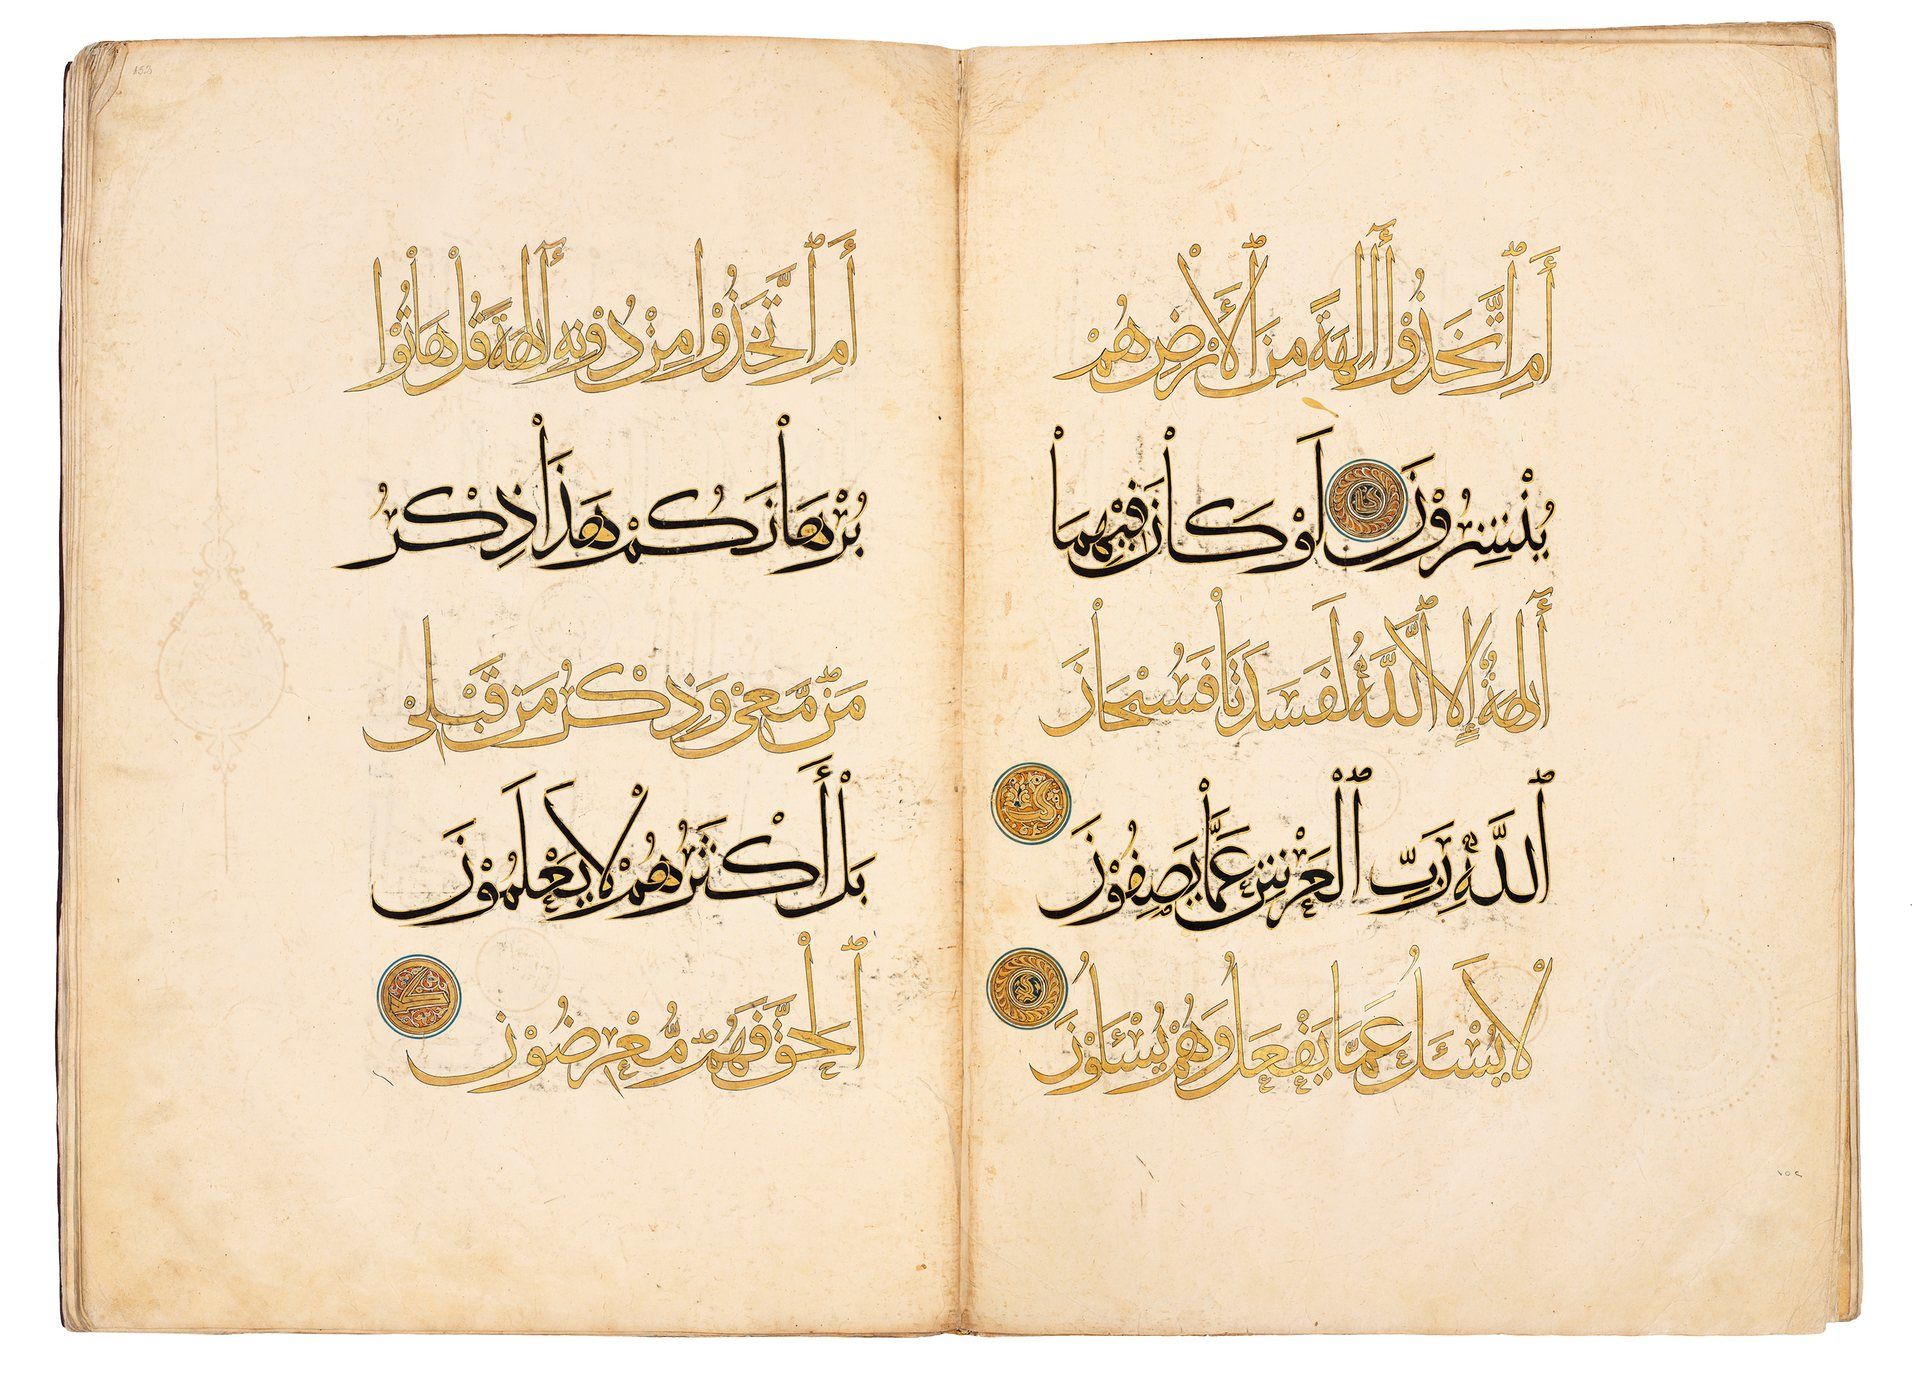 أَمِ ٱتَّخَذُوْا أَالِهَةً مِنَ ٱلْأَرْضِ هُمْ
يُنْشِرُوْنَ لَوْ كَانَ فِيْهِمَا
أٰلِهَةٌ إِلَّا ٱللَّهُ لَفَسَدَتَا فَسُبْحَانَ
ٱللَّهِ رَبِّ ٱلْعَرْشِ عَمَّا يَصِفُوْنَ
لَا يُسْئَلُ عَمَّا يَفْعَلُ وَهُمْ يُسْئَلُوْنَ
أَمِ ٱتَّخَذُوْا مِنْ دُوْنِهِ أٰلِهَةً قُلْ هَاتُوْا
بُرْهَانَكُمْ هَذَا ذِكْرُ
مَنْ مَّعِىْ وَذِكْرُ مَنْ قَبْلِىْ
بَلْ أَكْثَرُهُمْ لَا يَعْلَمُوْنَ
ٱلْحَقَّ فَهُمْ مُّعْرِضُوْنَ